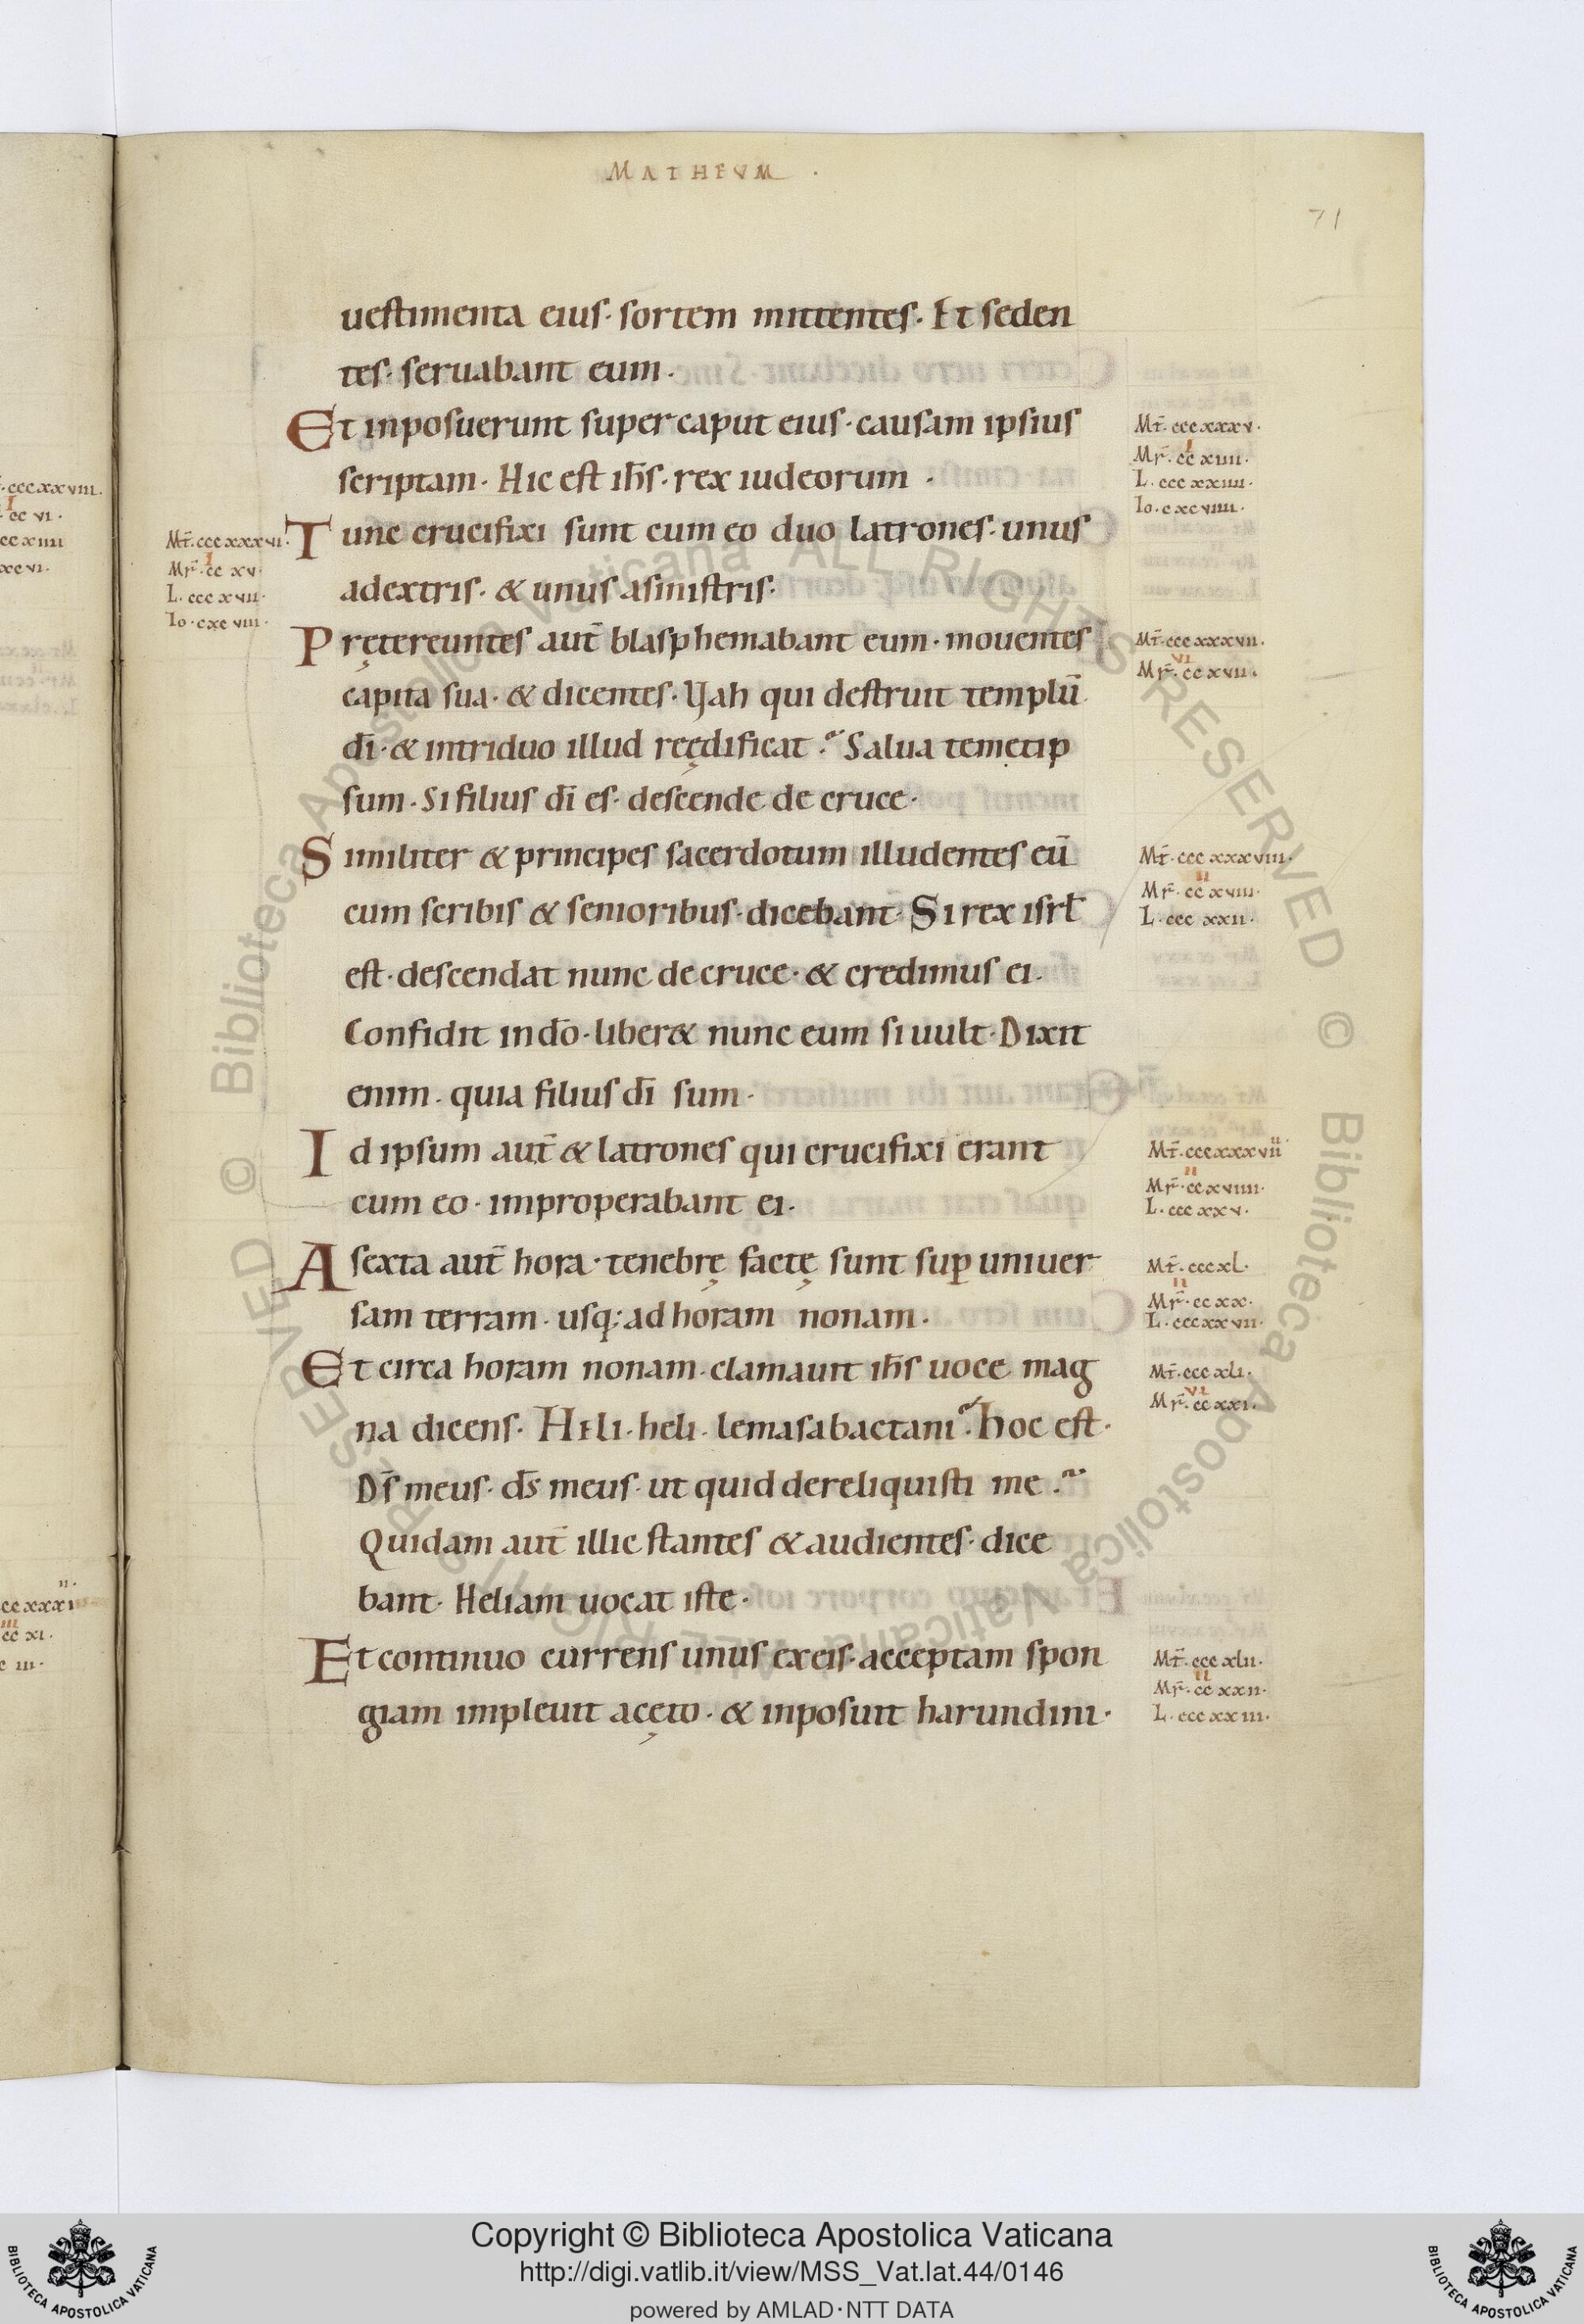 MATHEVM ·
71
uestimenta eius· sortem mittentes· Et seden
tes· seruabant eum·
Et inposuerunt super caput eius· causam ipsius
scriptam· Hic est ihs̄· rex iudeorum ·
Tunc crucifixi sunt cum eo duo latrones· unus
adextris· & unus asinistris·
Pręter euntes aut̄ blasphemabant eum· mouentes
capita sua· & dicentes· Vah qui destruit templū
dī· & intriduo illud reędificat? Salua temetip
sum· Si filius dī es· descende de cruce·
Similiter & principes sacerdotum illudentes eū
cum scribis & senioribus· dicebant· Si rex isrł
est· descendat nunc de cruce· & credimus ei·
Confidit in dō· liber& nunc eum si uult· Dixit
enim· quia filius dī sum·
Id ipsum aut̄ & latrones qui crucifixi erant
cum eo· improperabant ei·
A sexta aut̄ hora· tenebrę factę sunt suꝑ uniuer
sam terram· usq; ad horam nonam·
Et circa horam nonam· clamauit ihs̄ uoce mag
na dicens· Heli· heli· lemasabactani? hoc est·
Ds̄ meus· ds̄ meus· ut quid dereliquisti me?
Quidam aut̄ illic stantes & audientes· dice
bant· Heliam uocat iste·
Et continuo currens unus exeis· acceptam spon
giam impleuit acęto· & inposuit harundini·
Mt̄· cccxxxv·
I
Mr̄· ccxiiii·
L· cccxxiiii·
Io· cxcviiii·
Mt̄· cccxxxvi·
I
Mr̄· ccxv·
L· cccxvii·
Io· cxcviii·
Mt̄· cccxxxvii·
VI
Mr̄· ccxvii·
Mt̄· cccxxxviii·
II
Mr̄· ccxviii·
L· cccxxii·
Mt̄· cccxxxvii
II
Mr̄· ccxviiii·
L· cccxxv·
Mt̄· cccxl·
II
Mr̄· ccxx·
L· cccxxvii·
Mt̄· cccxli·
VI
Mr̄· ccxxi·
Mt̄· cccxlii·
II
Mr̄· ccxxii·
L· cccxxiii·
Copyright © Biblioteca Apostolica Vaticana
http://digi.vatlib.it/view/MSS_Vat.lat.44/0146
powered by AMLAD·NTT DATA
BIBLIOTECA APOSTOLICA VATICANA
BIBLIOTECA APOSTOLICA VATICANA
© Biblioteca Apostolica Vaticana ALL RIGHTS RESERVED
© Biblioteca Apostolica Vaticana ALL RIGHTS RESERVED